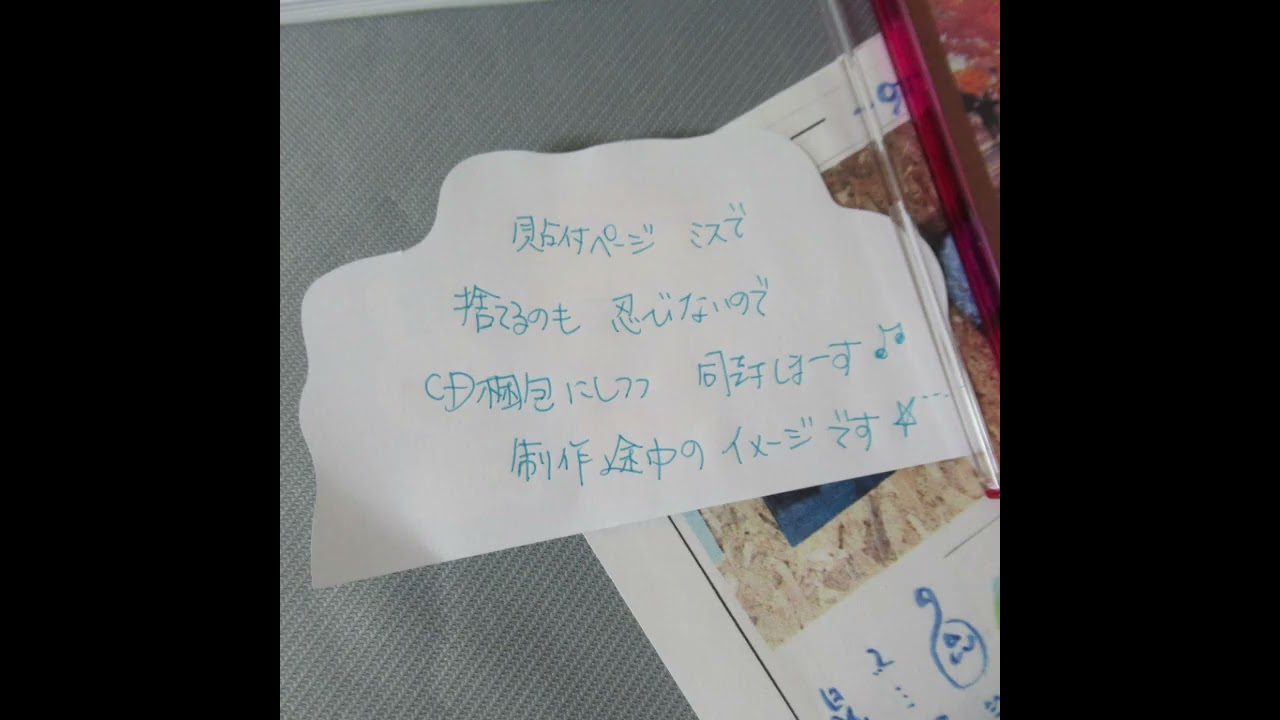 貼付ページ ミスで
捨てるのも 忍びないので
CD梱包にしつつ 同封しまーす♫
制作途中の イメージです☆…